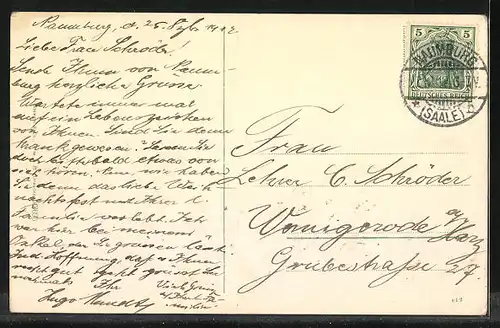 Naumburg, d. 25. Dzb. 19
Liebe Frau Schröder!
Sende Ihnen von Naum-
burg herzliche Grüsse
Wartete immer mal
auf ein Lebenszeichen
von Ihnen. Sind Sie denn
krank gewesen? Lassen Sie
doch bald etwas von
sich hören. Wie haben
Sie denn das liebe Weih-
nachtsfest mit Ihrer l.
Familie verlebt. Ich
war hier bei meinem
Onkel, der Sie grüssen lässt.
In d. Hoffnung, daß es Ihnen
recht gut geht grüßt Sie
nochmals Ihr
Hugo
Viele Grüße
5 5
DEUTSCHES REICH
NAUMBURG
* (SAALE) *
Frau
Lehrer C. Schröder
Wernigerode a/Harz
Grubestraße 27.